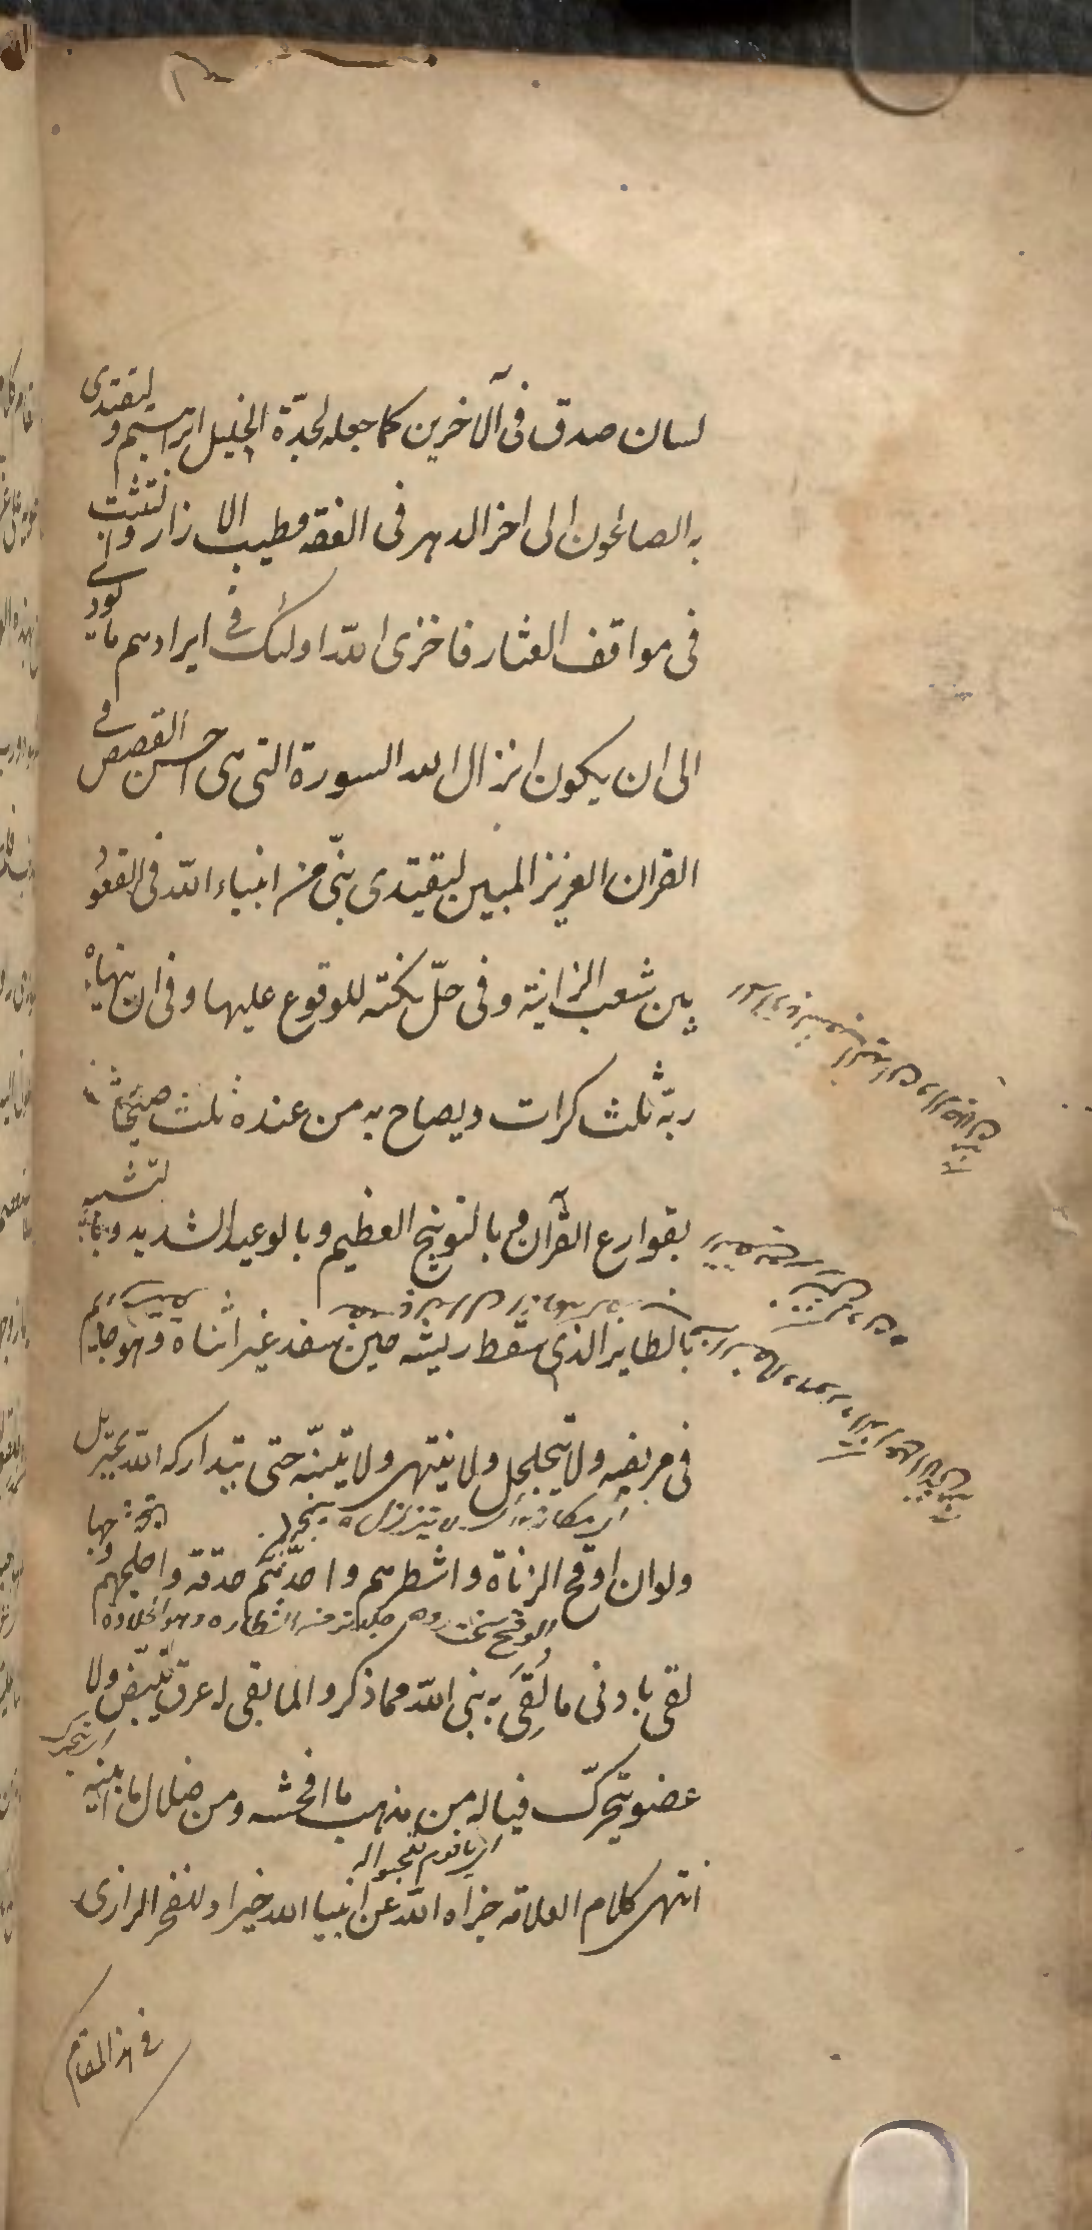 لسان صدق فى الآخرين كما جعله لجدّه الخليل ابراهيم و ليقتدى
به الصالحون الى اخر الدهر فى العفة وطيب الازار و التثبت
فى مواقف العثار فاخزى الله اولئك فى ايرادهم ما يؤدى
الى ان يكون انزال الله السورة التى هى احسن القصص فى
القران العزيز المبين ليقتدى بنبى من انبياء الله فى القعود
بين شعب الزانية وفى حلّ تكته للوقوع عليها وفى ان ينهاه
ربه ثلث كرات ويصاح به من عنده ثلث صيحات
بقوارع القرآن و بالتوبيخ العظيم وبالوعيد الشديد و بالتشبيه
بالطاير الذى سقط ريشه حين سفد غير انثاه وهو جاثم
فى مربضه ولا يتحلحل ولا ينتهى ولا يتنبّه حتى يتداركه الله بجبريل
اى مكانه اى لا يتزلزل
ولو ان اوقح الزناة و اشطرهم و احدّهم حدقة و اجلحهم وجها
لقى بادنى ما لقى به نبى الله مما ذكروا لما بقى له عرق ينبض ولا
اى يتحرك
عضو يتحرّك فيا له من مذهب ما افحشه ومن ضلال ما ابينه
اى يا قوم تعجبوا له
انتهى كلام العلامة جزاه الله عن انبياء الله خيرا و للفخر الرازى
فى هذا المقام